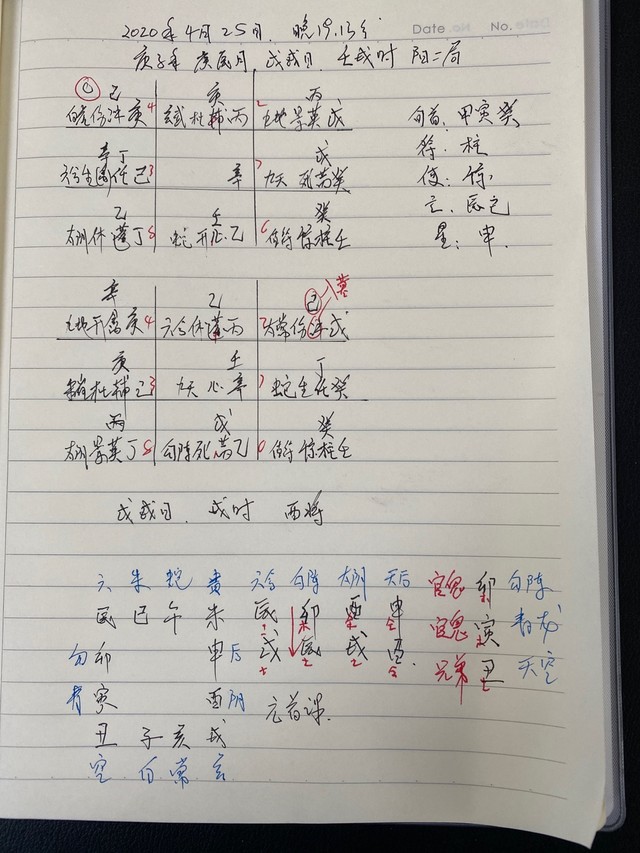 Date No.
2020年4月25日. 晚19.13分
庚子年 庚辰月 戊戌日. 壬戌时 阳二局
己 庚 丙
白虎伤冲庚4 玄武杜辅丙 2九地景英戊 旬首: 甲寅癸
辛丁 戊 符: 柱
六合生任己3 辛 7九天死芮癸 使: 惊
乙 壬 癸 空. 辰巳
太阴休蓬丁8 蛇开心乙 6值符惊柱壬 星: 申.
辛 乙 己 墓
九地开禽庚4 六合休蓬丙 2太常伤冲戊
庚 壬 丁
杜辅己3 九天心辛 7蛇生任癸
丙 戊 癸
太阴景英丁8 勾陈死芮乙 6值符惊柱壬
戊戌日. 戌时 酉将
六 朱 蛇 贵 六合 勾陈 太阴 天后 官鬼 卯 勾陈
辰 巳 午 未 辰 卯 酉 申 官鬼 寅 青龙
勾 卯 申 后 戌 辰 戌 酉. 兄弟 丑 天空
青 寅 酉 阴 元首课.
丑 子 亥 戌
空 白 常 玄